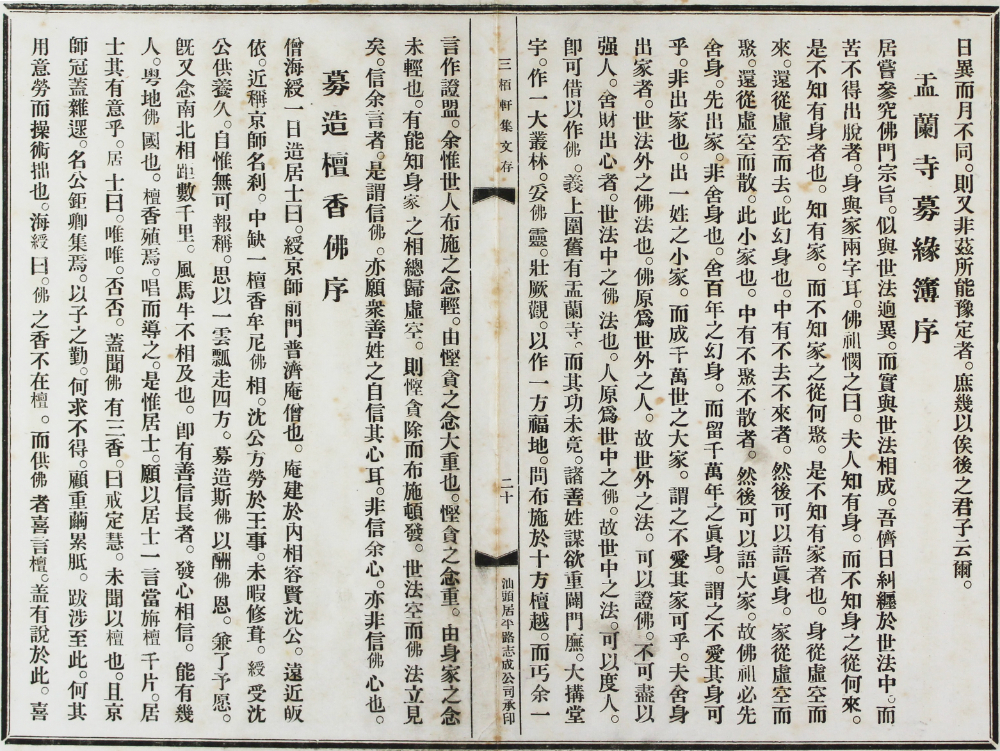 日異而月不同。則又非茲所能豫定者。庶幾以俟後之君子云爾。
盂蘭寺募緣簿序
居嘗參究佛門宗旨。似與世法逈異。而實與世法相成。吾儕日糾纒於世法中。而
苦不得出脫者。身與家兩字耳。佛祖憫之曰。夫人知有身。而不知身之從何來。
是不知有身者也。知有家。而不知家之從何聚。是不知有家者也。身從虛空而
來。還從虛空而去。此幻身也。中有不去不來者。然後可以語眞身。家從虛空而
聚。還從虛空而散。此小家也。中有不聚不散者。然後可以語大家。故佛祖必先
舍身。先出家。非舍身也。舍百年之幻身。而留千萬年之眞身。謂之不愛其身可
乎。非出家也。出一姓之小家。而成千萬世之大家。謂之不愛其家可乎。夫舍身
出家者。世法外之佛法也。佛原爲世外之人。故世外之法。可以證佛。不可盡以
强人。舍財出心者。世法中之佛法也。人原爲世中之佛。故世中之法。可以度人。
卽可借以作佛。義上圍舊有盂蘭寺。而其功未竟。諸善姓謀欲重闢門廡。大搆堂
宇。作一大叢林。妥佛靈。壯厥觀。以作一方福地。問布施於十方檀越。而丐余一
三栢軒集文存
二十
汕頭居平路志成公司承印
言作證盟。余惟世人布施之念輕。由慳貪之念大重也。慳貪之念重。由身家之念
未輕也。有能知身家之相總歸虛空。則慳貪除而布施頓發。世法空而佛法立見
矣。信余言者。是謂信佛。亦願衆善姓之自信其心耳。非信余心。亦非信佛心也。
募造檀香佛序
僧海綬一日造居士曰。綬京師前門普濟庵僧也。庵建於內相容賢沈公。遠近皈
依。近稱京師名刹。中缺一檀香牟尼佛相。沈公方勞於王事。未暇修葺。綬受沈
公供養久。自惟無可報稱。思以一雲瓢走四方。募造斯佛以酬佛恩。兼了予愿。
旣又念南北相距數千里。風馬牛不相及也。卽有善信長者。發心相信。能有幾
人。粵地佛國也。檀香殖焉。唱而導之。是惟居士。願以居士一言當旃檀千片。居
士其有意乎。居士曰。唯唯。否否。蓋聞佛有三香。曰戒定慧。未聞以檀也。且京
師冠蓋雜遝。名公鉅卿集焉。以子之勤。何求不得。顧重繭累胝。跋涉至此。何其
用意勞而操術拙也。海綬曰。佛之香不在檀。而供佛者喜言檀。蓋有說於此。喜